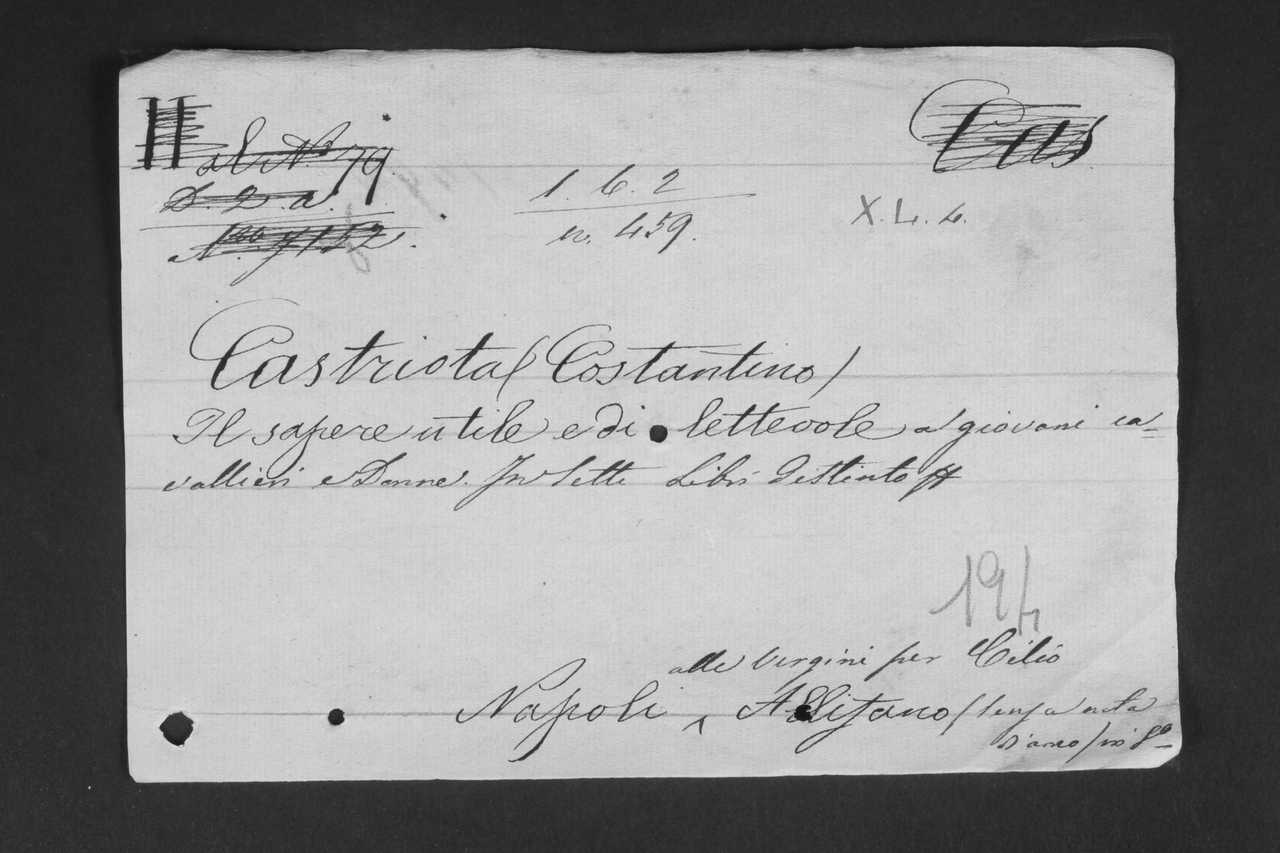 Cas
al N° 79.
D. 2. a.
1. 6. 2
n. 459.
X. L. 4.
Castriota (Costantino)
Il sapere utile e di lettevole a' giovani ca=
vallieri e Donne. In sette Libri Destinto
194
alle Vergini per Cilio
Napoli ^ Allifano (senza nota
d'anno) in 8°